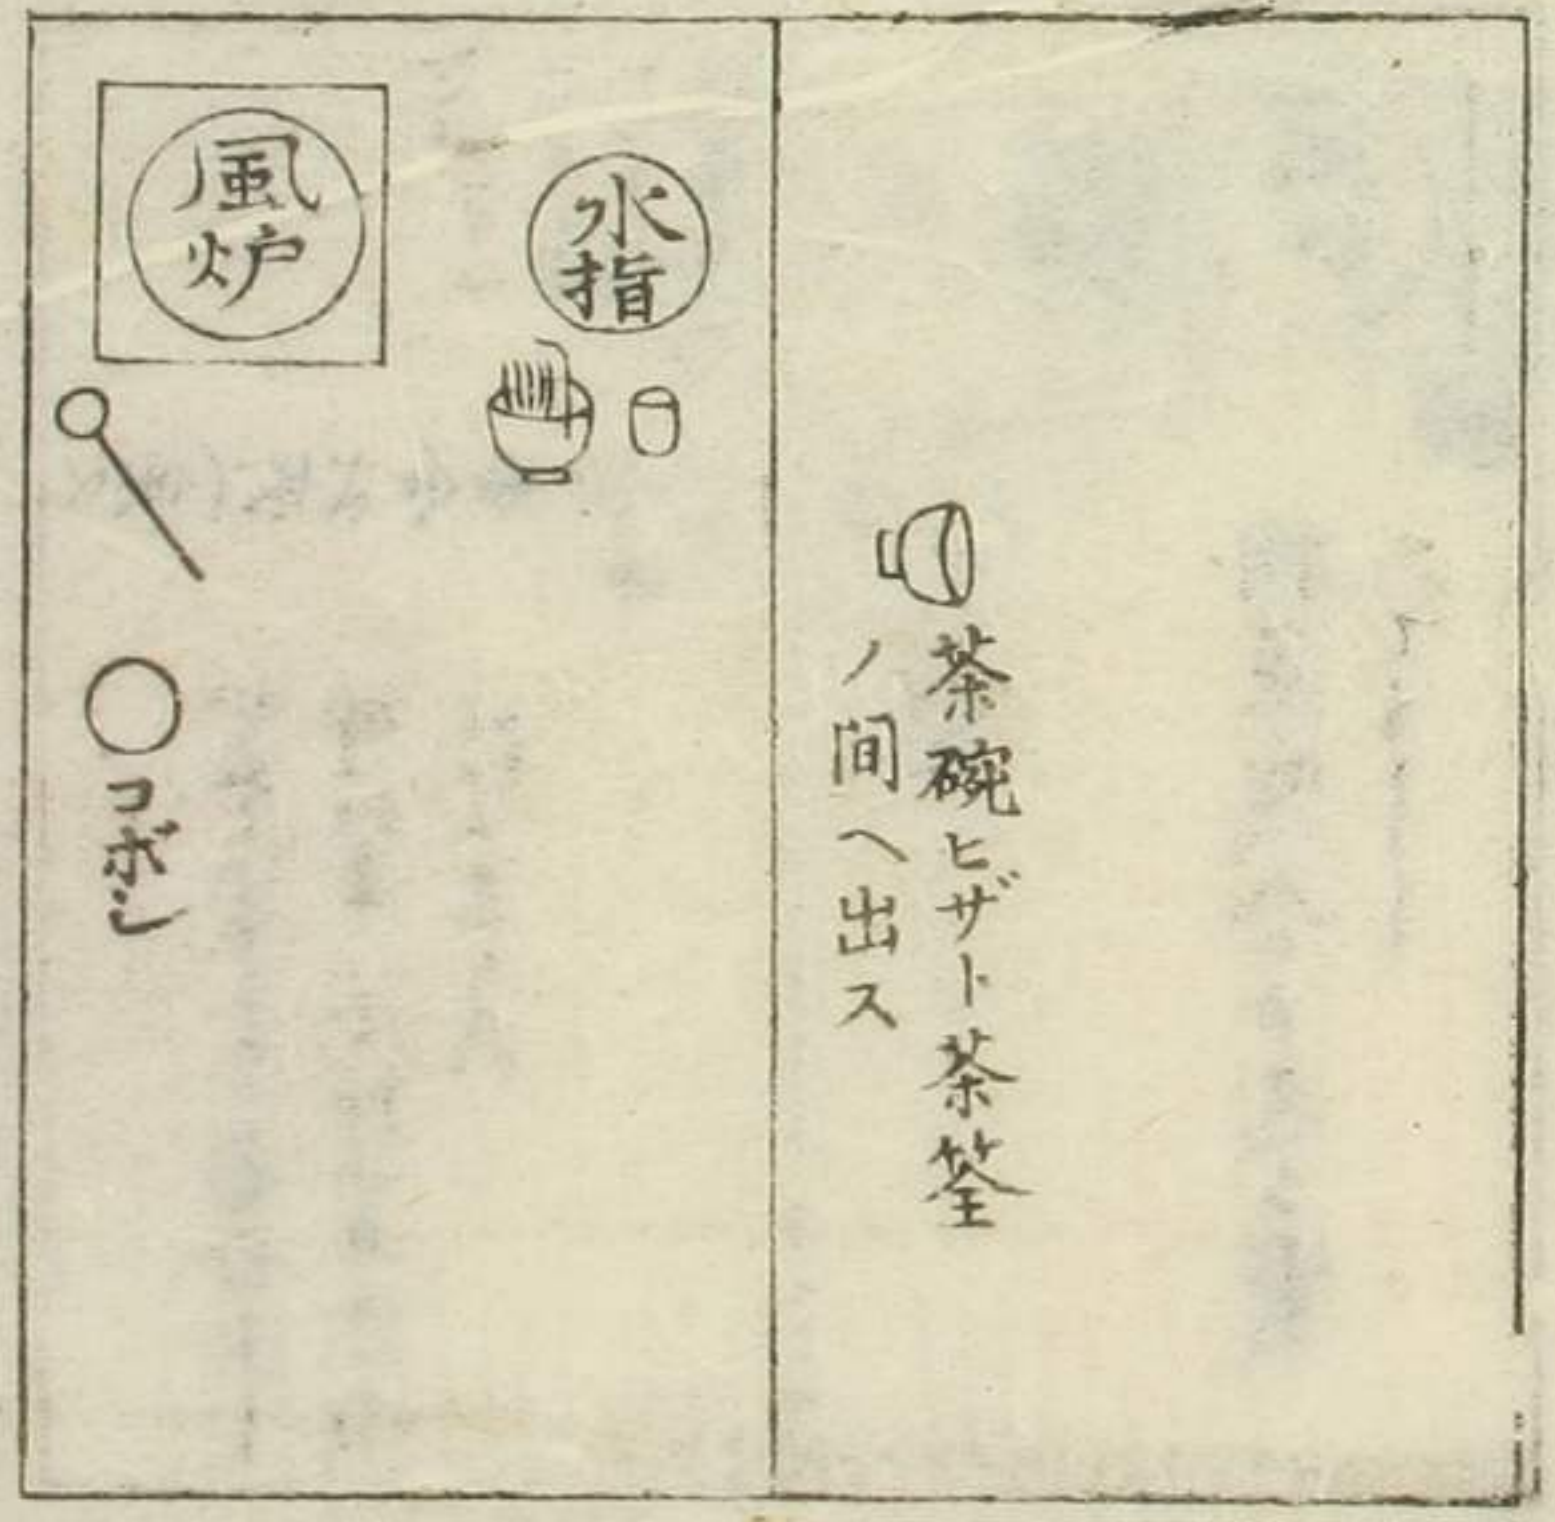 茶碗ヒザト茶筌
ノ間へ出ス
水
指
風
炉
コボシ